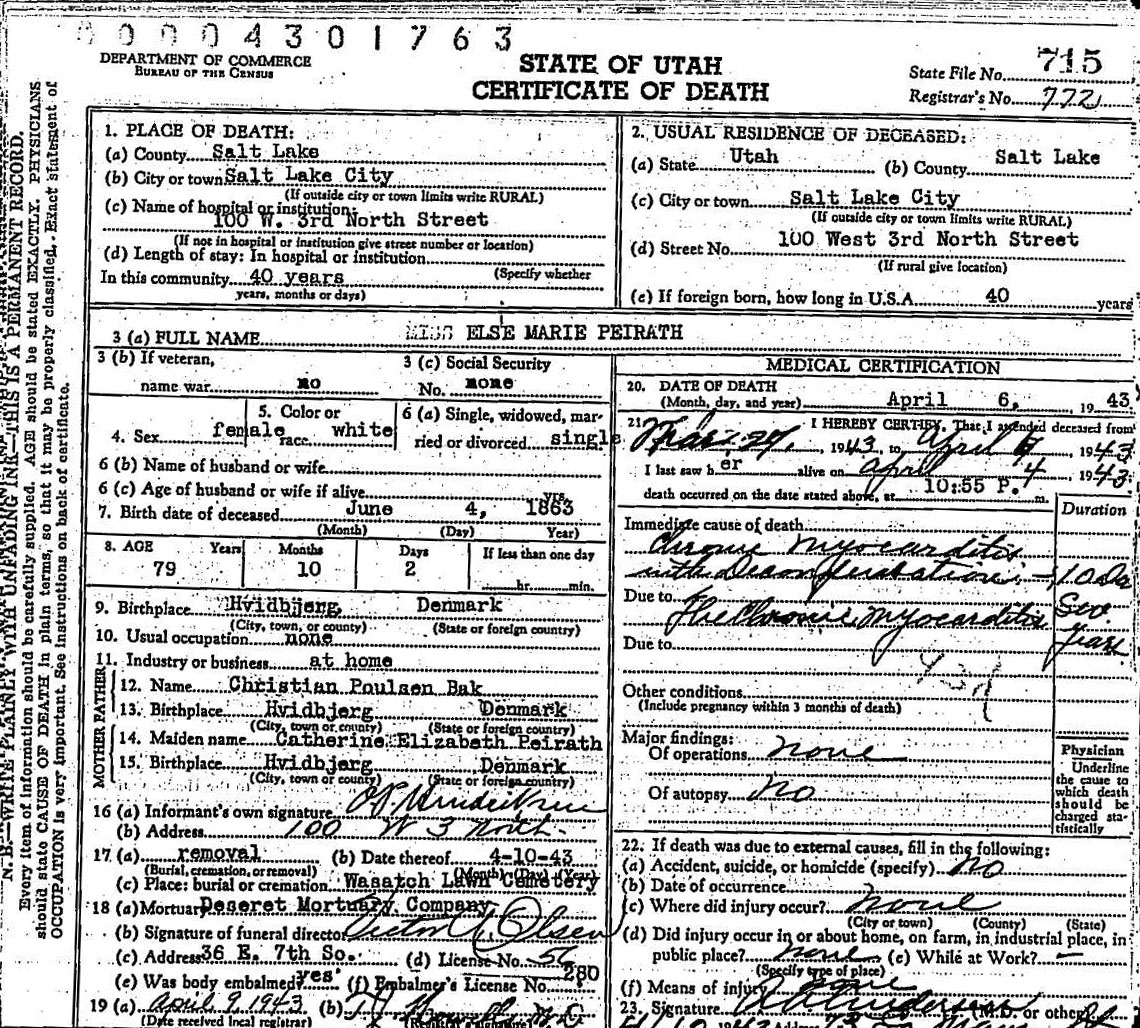 00004301763
DEPARTMENT OF COMMERCE
BUREAU OF THE CENSUS
STATE OF UTAH
CERTIFICATE OF DEATH
State File No. 715
Registrar's No. 772
N. B.—WRITE PLAINLY WITH UNFADING INK. THIS IS A PERMANENT RECORD.
Every item of information should be carefully supplied. AGE should be stated EXACTLY. PHYSICIANS
should state CAUSE OF DEATH in plain terms, so that it may be properly classified. Exact statement of
OCCUPATION is very important. See instructions on back of certificate.
1. PLACE OF DEATH:
(a) County Salt Lake
(b) City or town Salt Lake City
(If outside city or town limits write RURAL)
(c) Name of hospital or institution:
100 W. 3rd North Street
(If not in hospital or institution give street number or location)
(d) Length of stay: In hospital or institution
(Specify whether
In this community 40 years
years, months or days)
2. USUAL RESIDENCE OF DECEASED:
(a) State Utah (b) County Salt Lake
(c) City or town Salt Lake City
(If outside city or town limits write RURAL)
(d) Street No. 100 West 3rd North Street
(If rural give location)
(e) If foreign born, how long in U.S.A. 40 years
3 (a) FULL NAME MISS ELSE MARIE PEIRATH
3 (b) If veteran,
name war no
3 (c) Social Security
No. none
4. Sex female
5. Color or
race white
6 (a) Single, widowed, mar-
ried or divorced single
6 (b) Name of husband or wife
6 (c) Age of husband or wife if alive yrs.
7. Birth date of deceased June 4, 1863
(Month) (Day) Year)
8. AGE Years Months Days If less than one day
79 10 2 hr. min.
9. Birthplace Hvidbjerg Denmark
(City, town, or county) (State or foreign country)
10. Usual occupation none
11. Industry or business at home
FATHER
12. Name Christian Poulsen Bak
13. Birthplace Hvidbjerg Denmark
(City, town or county) (State or foreign country)
MOTHER
14. Maiden name Catherine Elizabeth Peirath
15. Birthplace Hvidbjerg Denmark
(City, town or county) (State or foreign country)
16 (a) Informant's own signature
(b) Address 100 W 3 North
17 (a) removal (b) Date thereof 4-10-43
(Burial, cremation, or removal) (Month) (Day) (Year)
(c) Place: burial or cremation Wasatch Lawn Cemetery
18 (a) Mortuary Deseret Mortuary Company
(b) Signature of funeral director Victor Olsen
(c) Address 36 E. 7th So. (d) License No. 56
(e) Was body embalmed? yes (f) Embalmer's License No. 280
19 (a) April 9, 1943 (b)
(Date received local registrar)
MEDICAL CERTIFICATION
20. DATE OF DEATH
(Month, day, and year) April 6, 1943
21. I HEREBY CERTIFY, That I attended deceased from
1943, to April 1943
I last saw her alive on April 4 1943
death occurred on the date stated above, at 10:55 P. m.
Duration
Immediate cause of death
Chronic Myocarditis
with Decompensation 10 Da
Due to Sev.
The Chronic Myocarditis Years
Due to
Other conditions
(Include pregnancy within 3 months of death)
Major findings:
Of operations none
Of autopsy No
Physician
Underline
the cause to
which death
should be
charged sta-
tistically
22. If death was due to external causes, fill in the following:
(a) Accident, suicide, or homicide (specify) No
(b) Date of occurrence
(c) Where did injury occur? none
(City or town) (County) (State)
(d) Did injury occur in or about home, on farm, in industrial place, in
public place? none (e) While at Work? —
(Specify type of place)
(f) Means of injury none
23. Signature (M.D. or other)